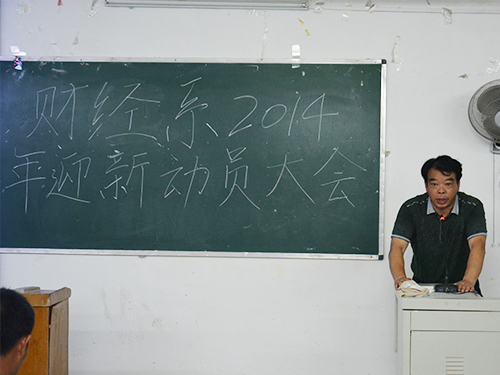 财经系2014
年迎新动员大会